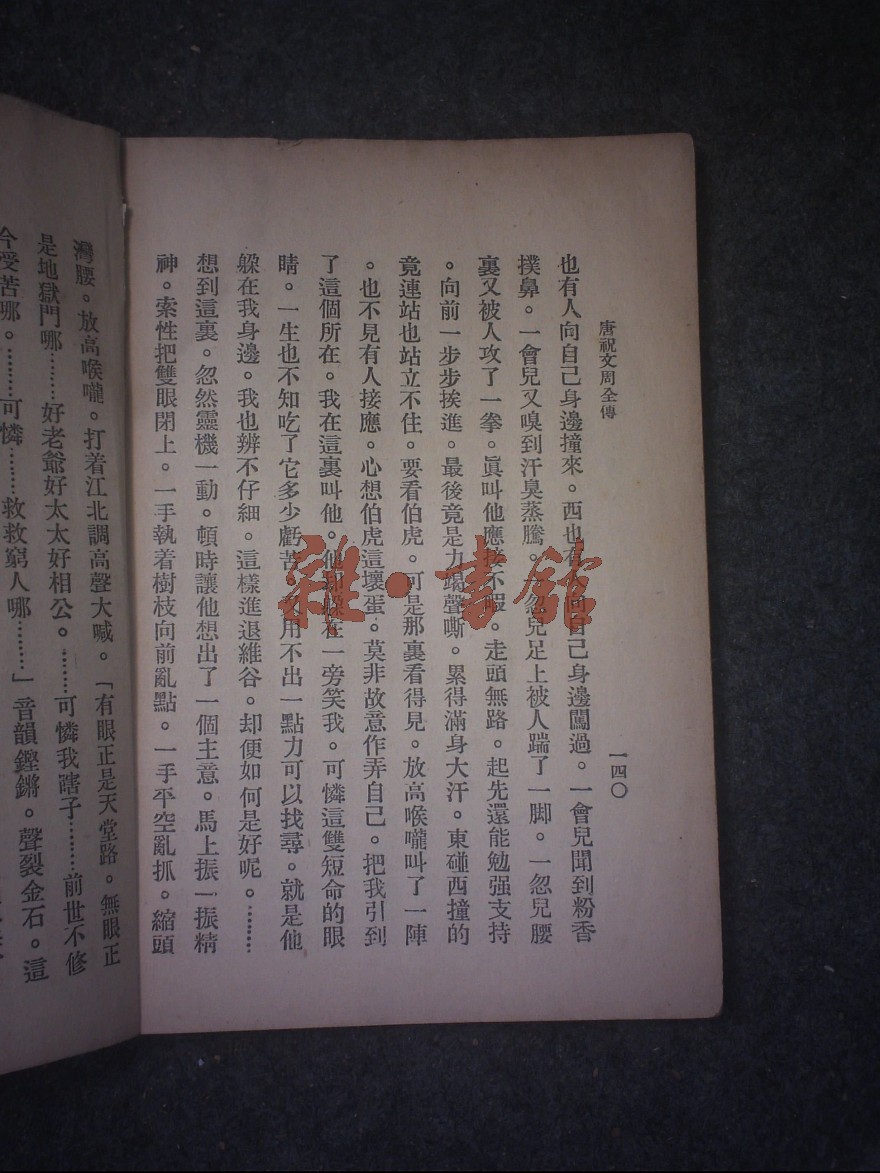 唐祝文周全傳
一四〇
也有人向自己身邊撞來。西也有人向自己身邊闖過。一會兒聞到粉香
撲鼻。一會兒又嗅到汗臭蒸騰。一忽兒足上被人踹了一脚。一忽兒腰
裏又被人攻了一拳。眞叫他應接不暇。走頭無路。起先還能勉强支持
。向前一步步挨進。最後竟是力竭聲嘶。累得滿身大汗。東碰西撞的
竟連站也站立不住。要看伯虎。可是那裏看得見。放高喉嚨叫了一陣
。也不見有人接應。心想伯虎這壞蛋。莫非故意作弄自己。把我引到
了這個所在。我在這裏叫他。他却躱在一旁笑我。可憐這雙短命的眼
睛。一生也不知吃了它多少虧苦。又用不出一點力可以找尋。就是他
躱在我身邊。我也辨不仔細。這樣進退維谷。却便如何是好呢。………
想到這裏。忽然靈機一動。頓時讓他想出了一個主意。馬上振一振精
神。索性把雙眼閉上。一手執着樹枝向前亂點。一手平空亂抓。縮頭
灣腰。放高喉嚨。打着江北調高聲大喊。「有眼正是天堂路。無眼正
是地獄門哪………好老爺好太太好相公。………可憐我瞎子………前世不修
今受苦哪。………可憐………救救窮人哪………」音韻鏗鏘。聲裂金石。這
雜·書館